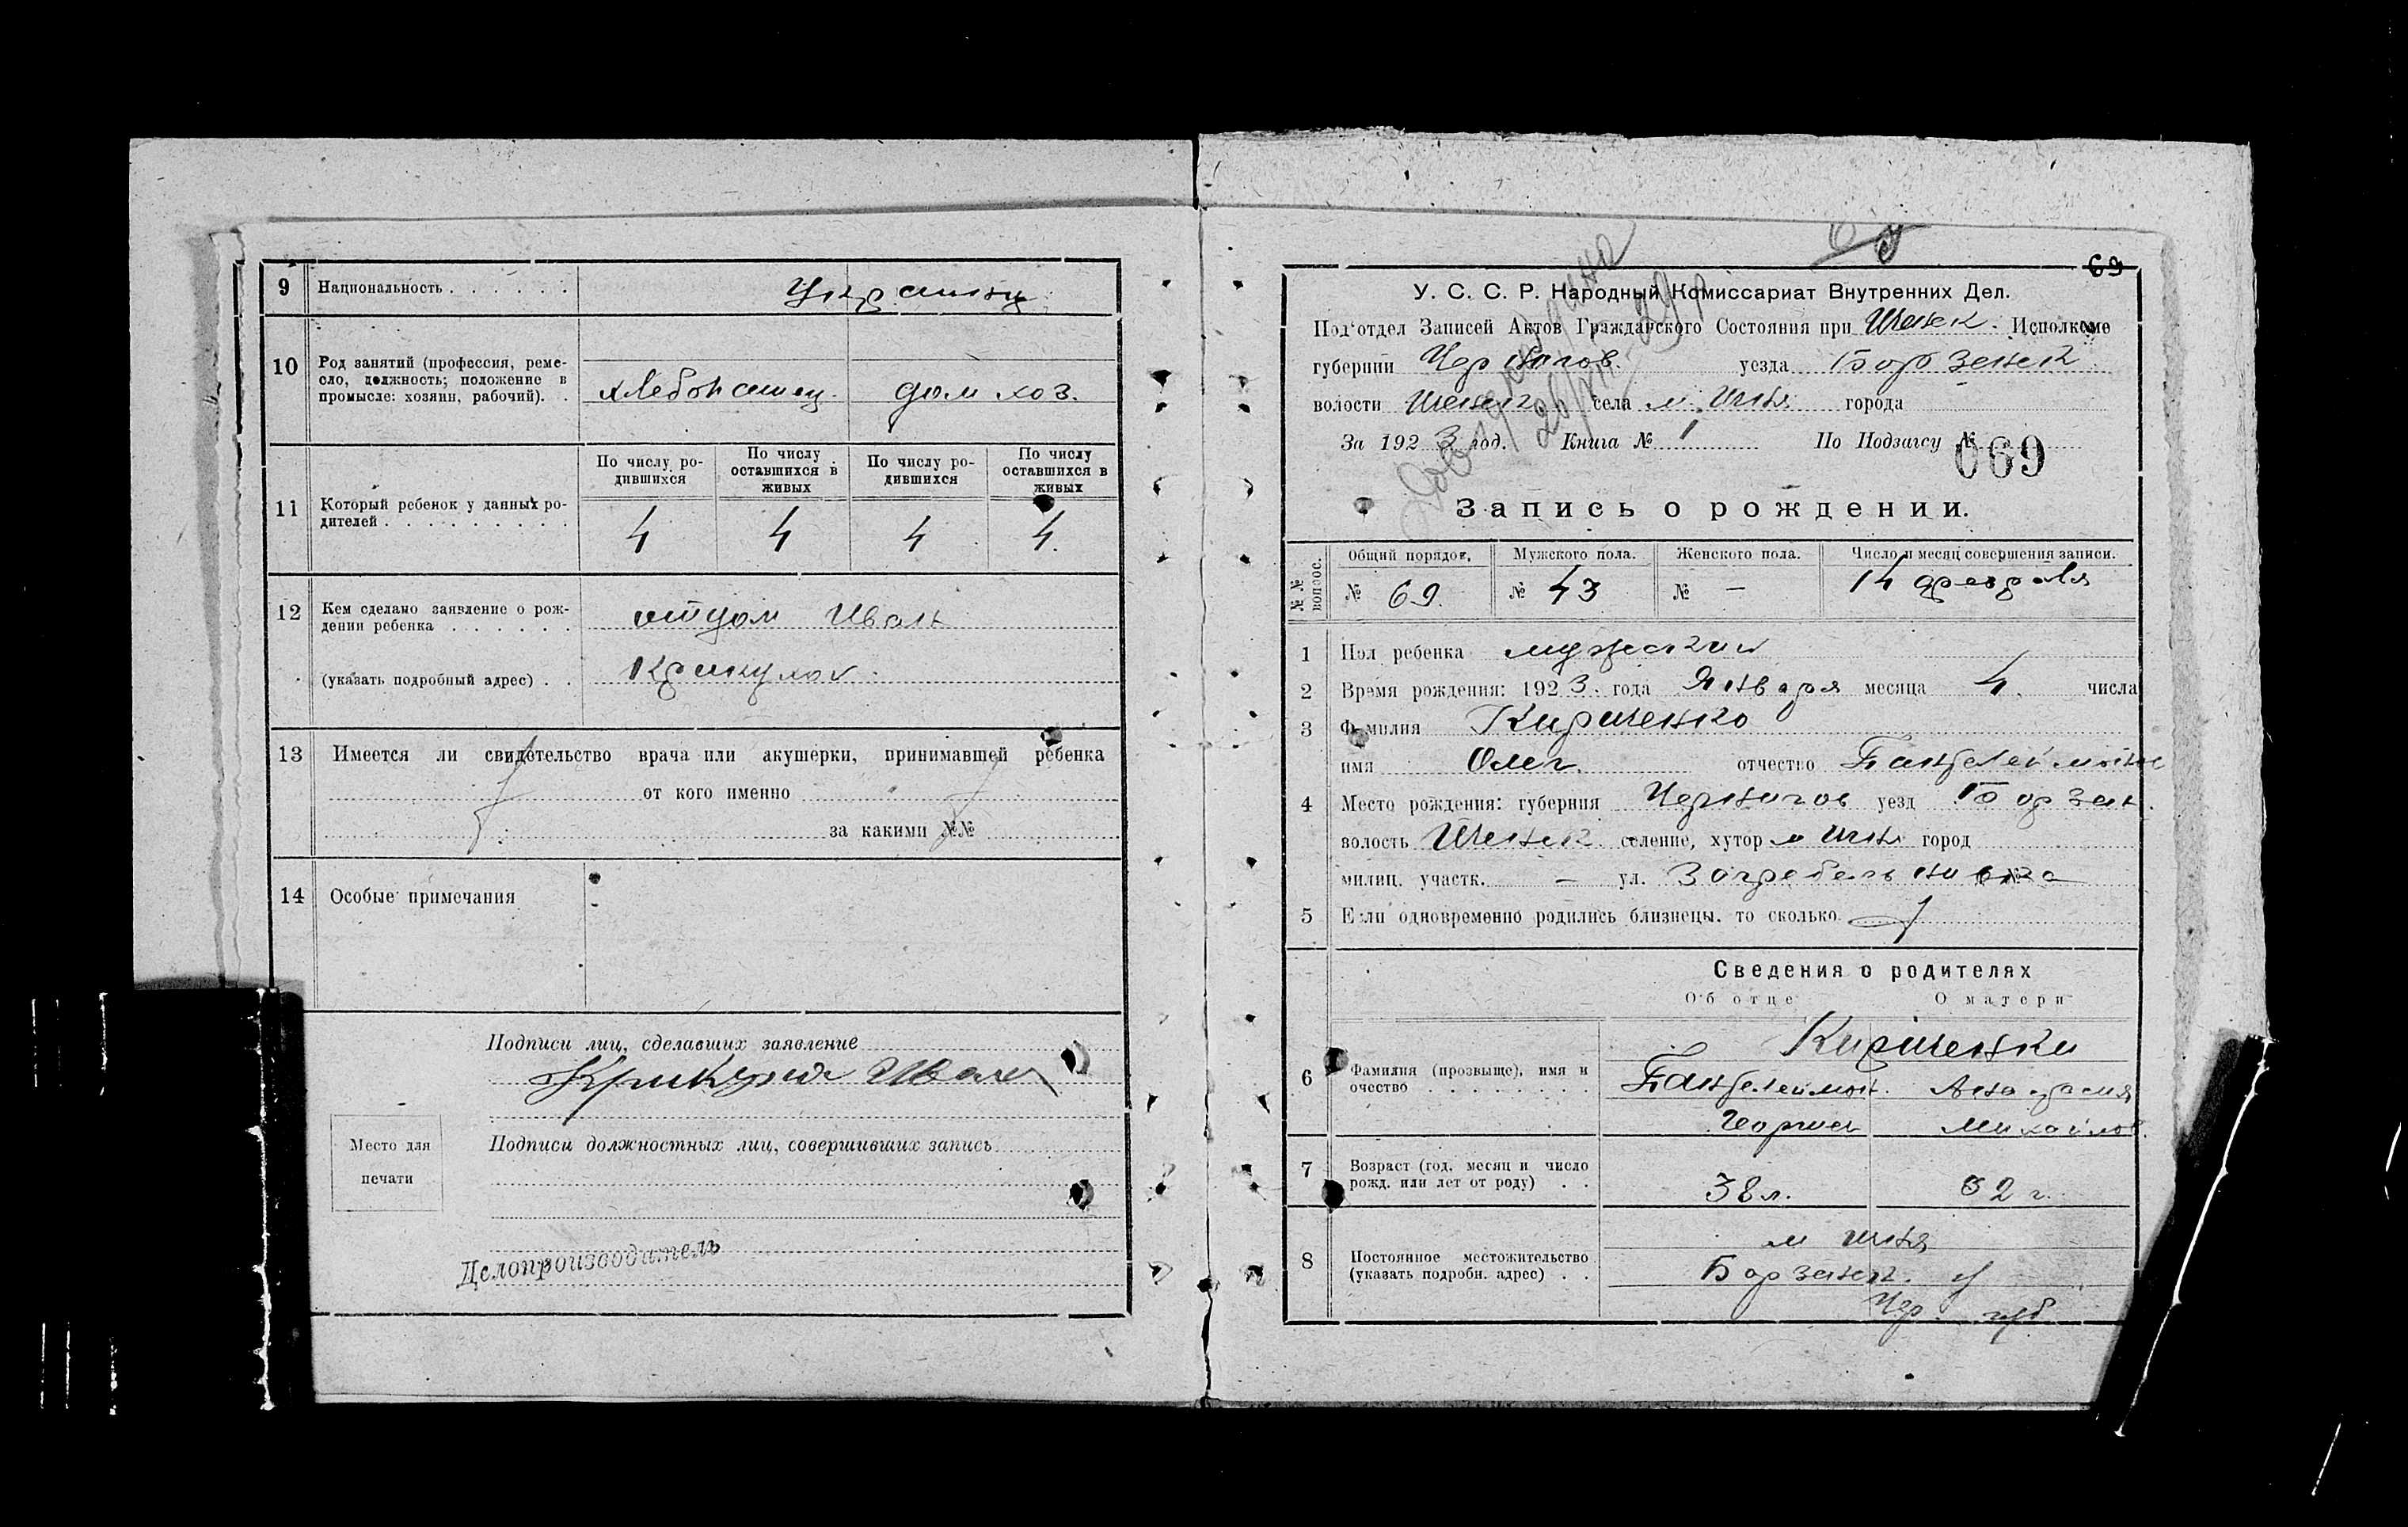 9 Национальность . . . . . . Украинц
10 Род занятий (профессия, реме-
сло, должность; положение в
промысле: хозяин, рабочий). . хлебопашец. дом хоз.
По числу ро-
дившихся
По числу
оставшихся в
живых
По числу ро-
дившихся
По числу
оставшихся в
живых
11 Который ребенок у данных ро-
дителей . . . . . . . . . . 4 4 4 4.
12 Кем сделано заявление о рож-
дении ребенка . . . . . . отцом Иван
(указать подробный адрес) . .
13 Имеется ли свидетельство врача или акушерки, принимавшей ребенка
от кого именно
за какими №№
14 Особые примечания
Подписи лиц, сделавших заявление
Иван
Место для
печати
Подписи должностных лиц, совершивших запись
Делопроизводитель
69
У. С. С. Р. Народный Комиссариат Внутренних Дел.
Под'отдел Записей Актов Гражданского Состояния при Иченск. Исполкоме
губернии Чернигов. уезда Борзенск
волости Иченск села м. Ичня города
За 1923 год. Книга № 1 По Подзагсу № 069
Запись о рождении.
№№ вопрос.
Общий порядок. Мужского пола. Женского пола. Число и месяц совершения записи.
№ 69. № 43 № — 14 февраля
1 Пол ребенка мужский
2 Время рождения: 1923. года Января месяца 4. числа
3 Фамилия Кириченко
имя Олег. отчество
4 Место рождения: губерния Чернигов уезд Борзен.
волость Иченск селение, хутор м Ичня город
милиц. участк. — ул. №
5 Если одновременно родились близнецы, то сколько
Сведения о родителях
Об отце О матери
Кириченки
6 Фамилия (прозвище), имя и
очество . . . . . . . . Пантелеймон. Анастасия
Георгиев Михайлов.
7 Возраст (год, месяц и число
рожд. или лет от роду) . . 38 л. 32 г.
м Ичня
8 Постоянное местожительство
(указать подробн. адрес) . . Борзенск. у
Чер. губ